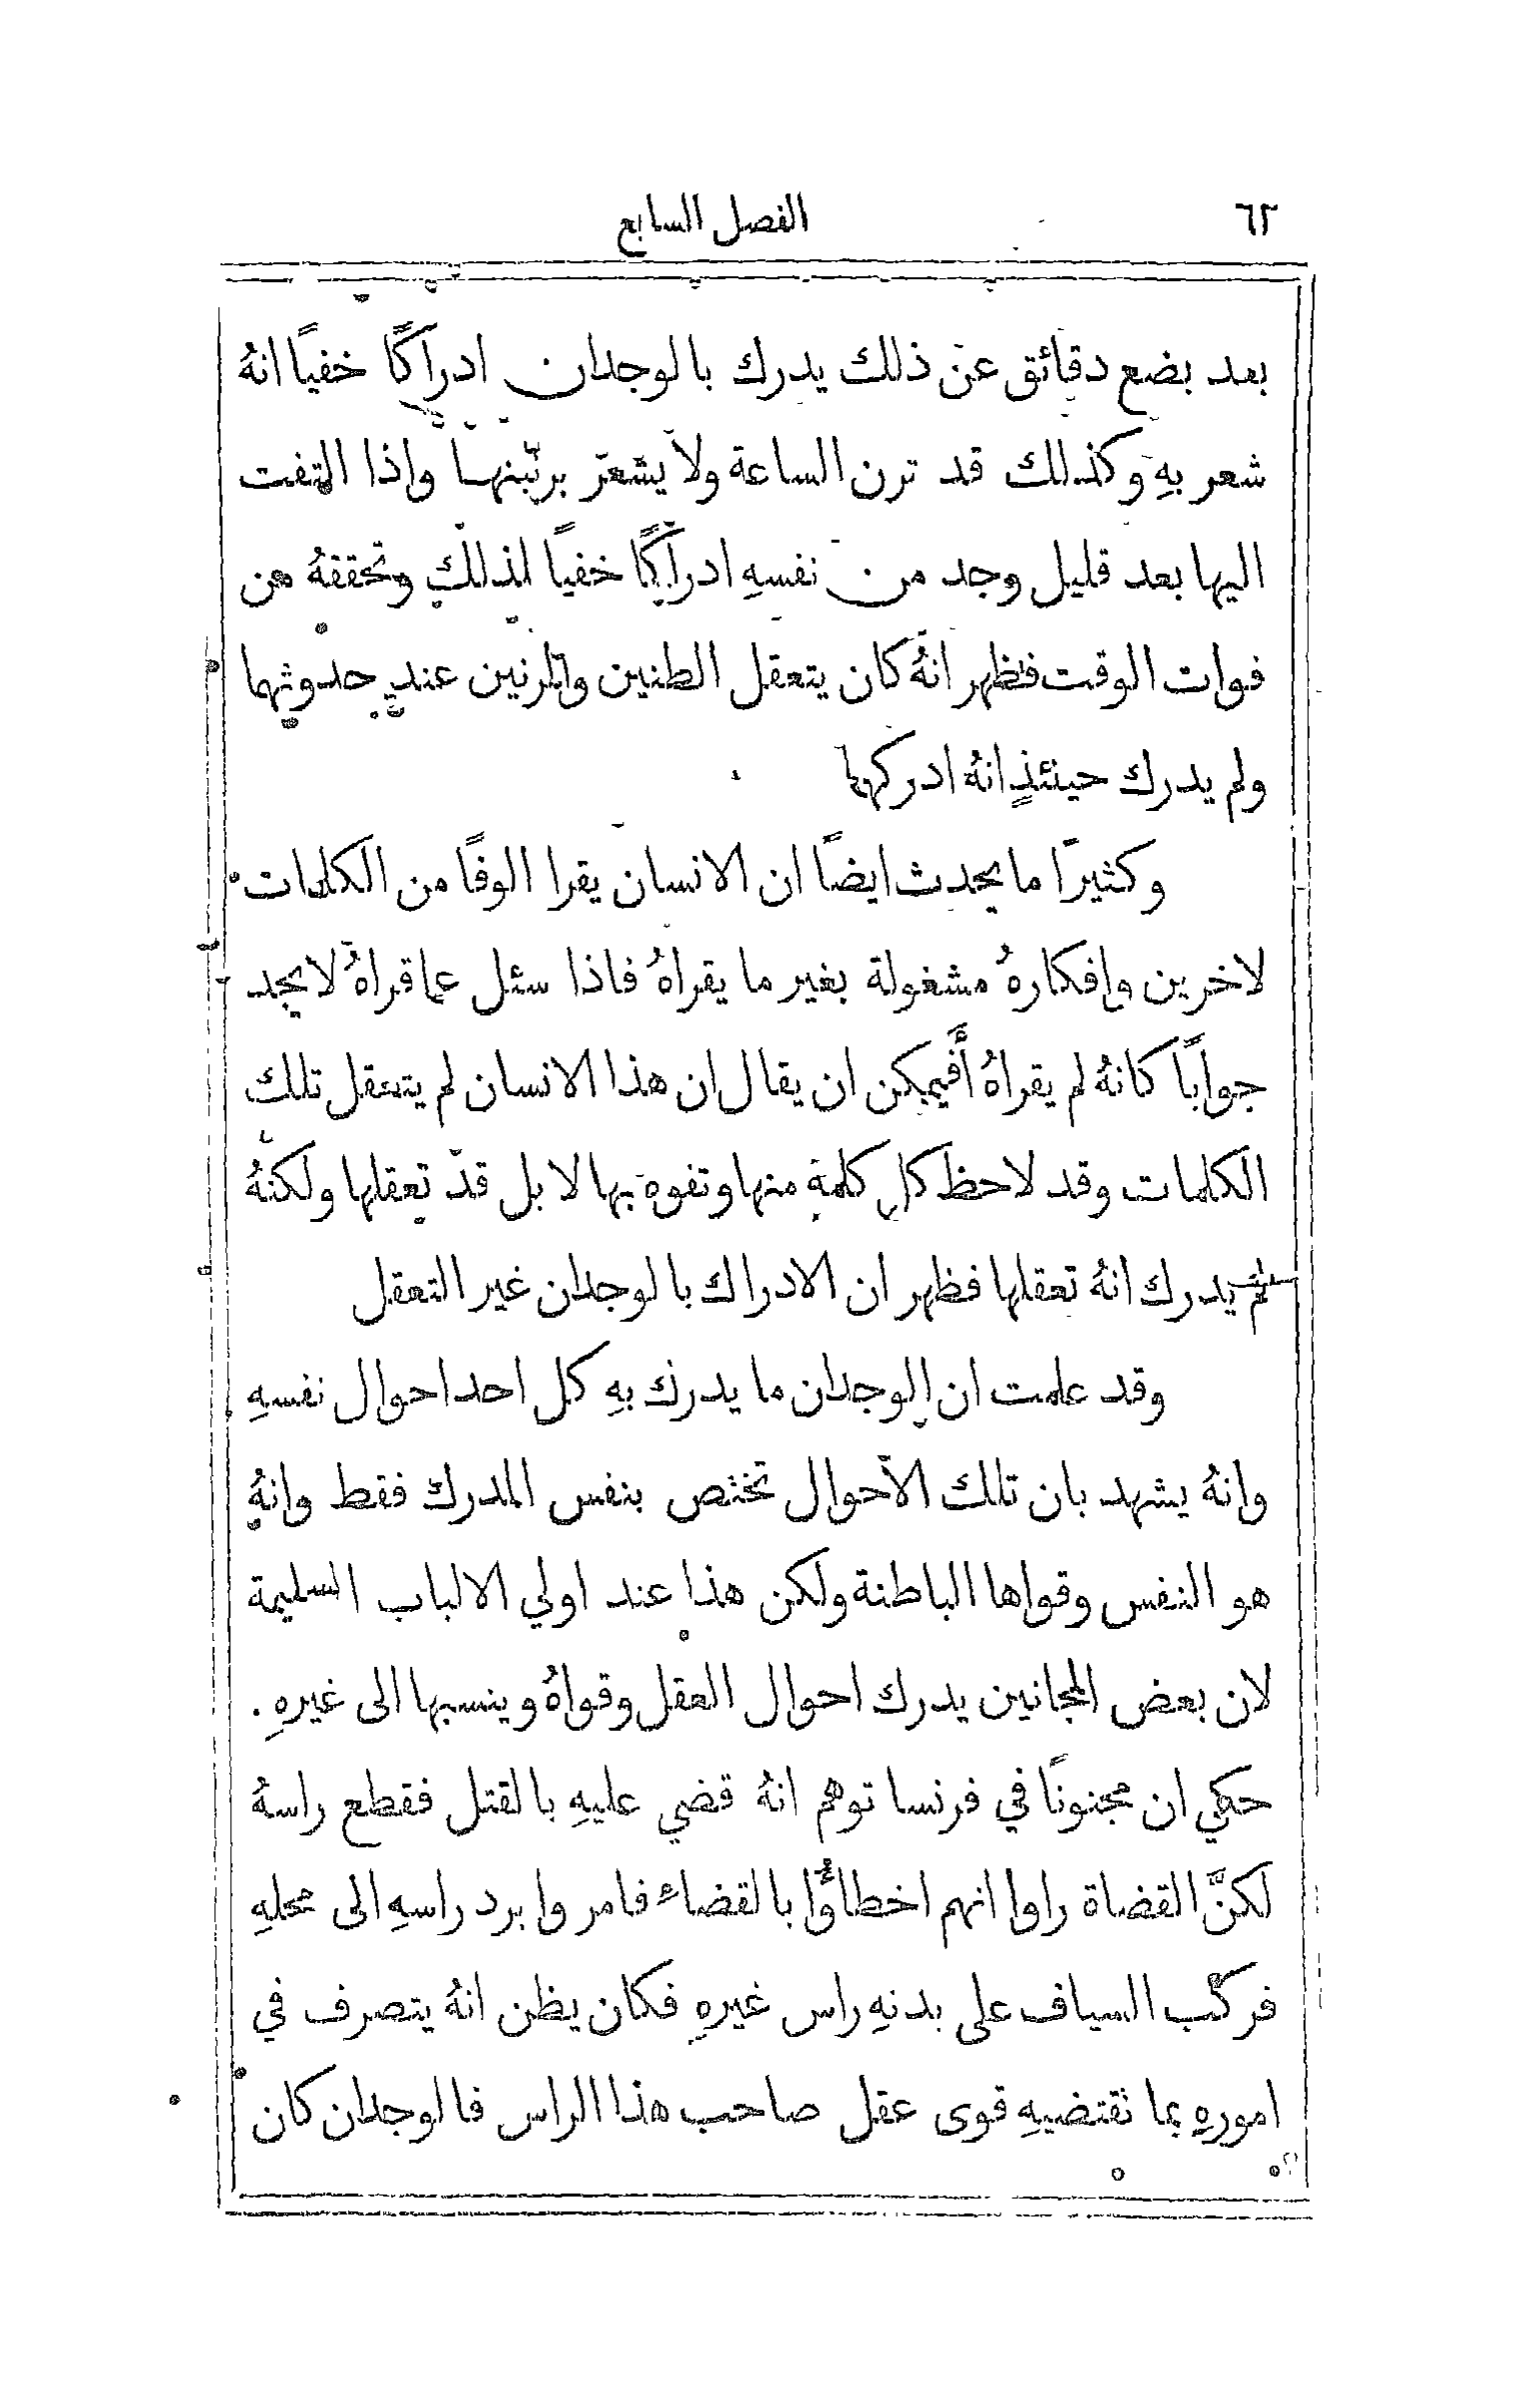 ٦٢
الفصل السابع
بعد بضع دقائق عن ذلك يدرك بالوجدان ادراكًا خفيًا انهُ
شعر بهِ وكذلك قد ترن الساعة ولا يشعر برنينها واذا التفت
اليها بعد قليل وجد من نفسهِ ادراكًا خفيًا لذلك وتحققهُ من
فوات الوقت فظهر انهُ كان يتعقل الطنين والرنين عند حدوثهما
ولم يدرك حينئذٍ انهُ ادركهما
وكثيرًا ما يحدث ايضًا ان الانسان يقرا الوفًا من الكلمات
لاخرين وافكارهُ مشغولة بغير ما يقراهُ فاذا سئل عما قراهُ لا يجد
جوابًا كانهُ لم يقراهُ أَفيمكن ان يقال ان هذا الانسان لم يتعقل تلك
الكلمات وقد لاحظ كل كلمة منها وتفوه بها لا بل قد تعقلها ولكنهُ
لم يدرك انهُ تعقلها فظهر ان الادراك بالوجدان غير التعقل
وقد علمت ان الوجدان ما يدرك بهِ كل احد احوال نفسهِ
وانهُ يشهد بان تلك الاحوال تختص بنفس المدرك فقط وانهُ
هو النفس وقواها الباطنة ولكن هذا عند اولي الالباب السليمة
لان بعض المجانين يدرك احوال العقل وقواهُ وينسبها الى غيرهِ .
حكي ان مجنونًا في فرنسا توهم انهُ قضي عليهِ بالقتل فقطع راسهُ
لكنَّ القضاة راوا انهم اخطاؤُا بالقضاء فامروا برد راسهِ الى محلهِ
فركَّب السياف على بدنهِ راس غيرهِ فكان يظن انهُ يتصرف في
امورهِ بما تقتضيهِ قوى عقل صاحب هذا الراس فالوجدان كان